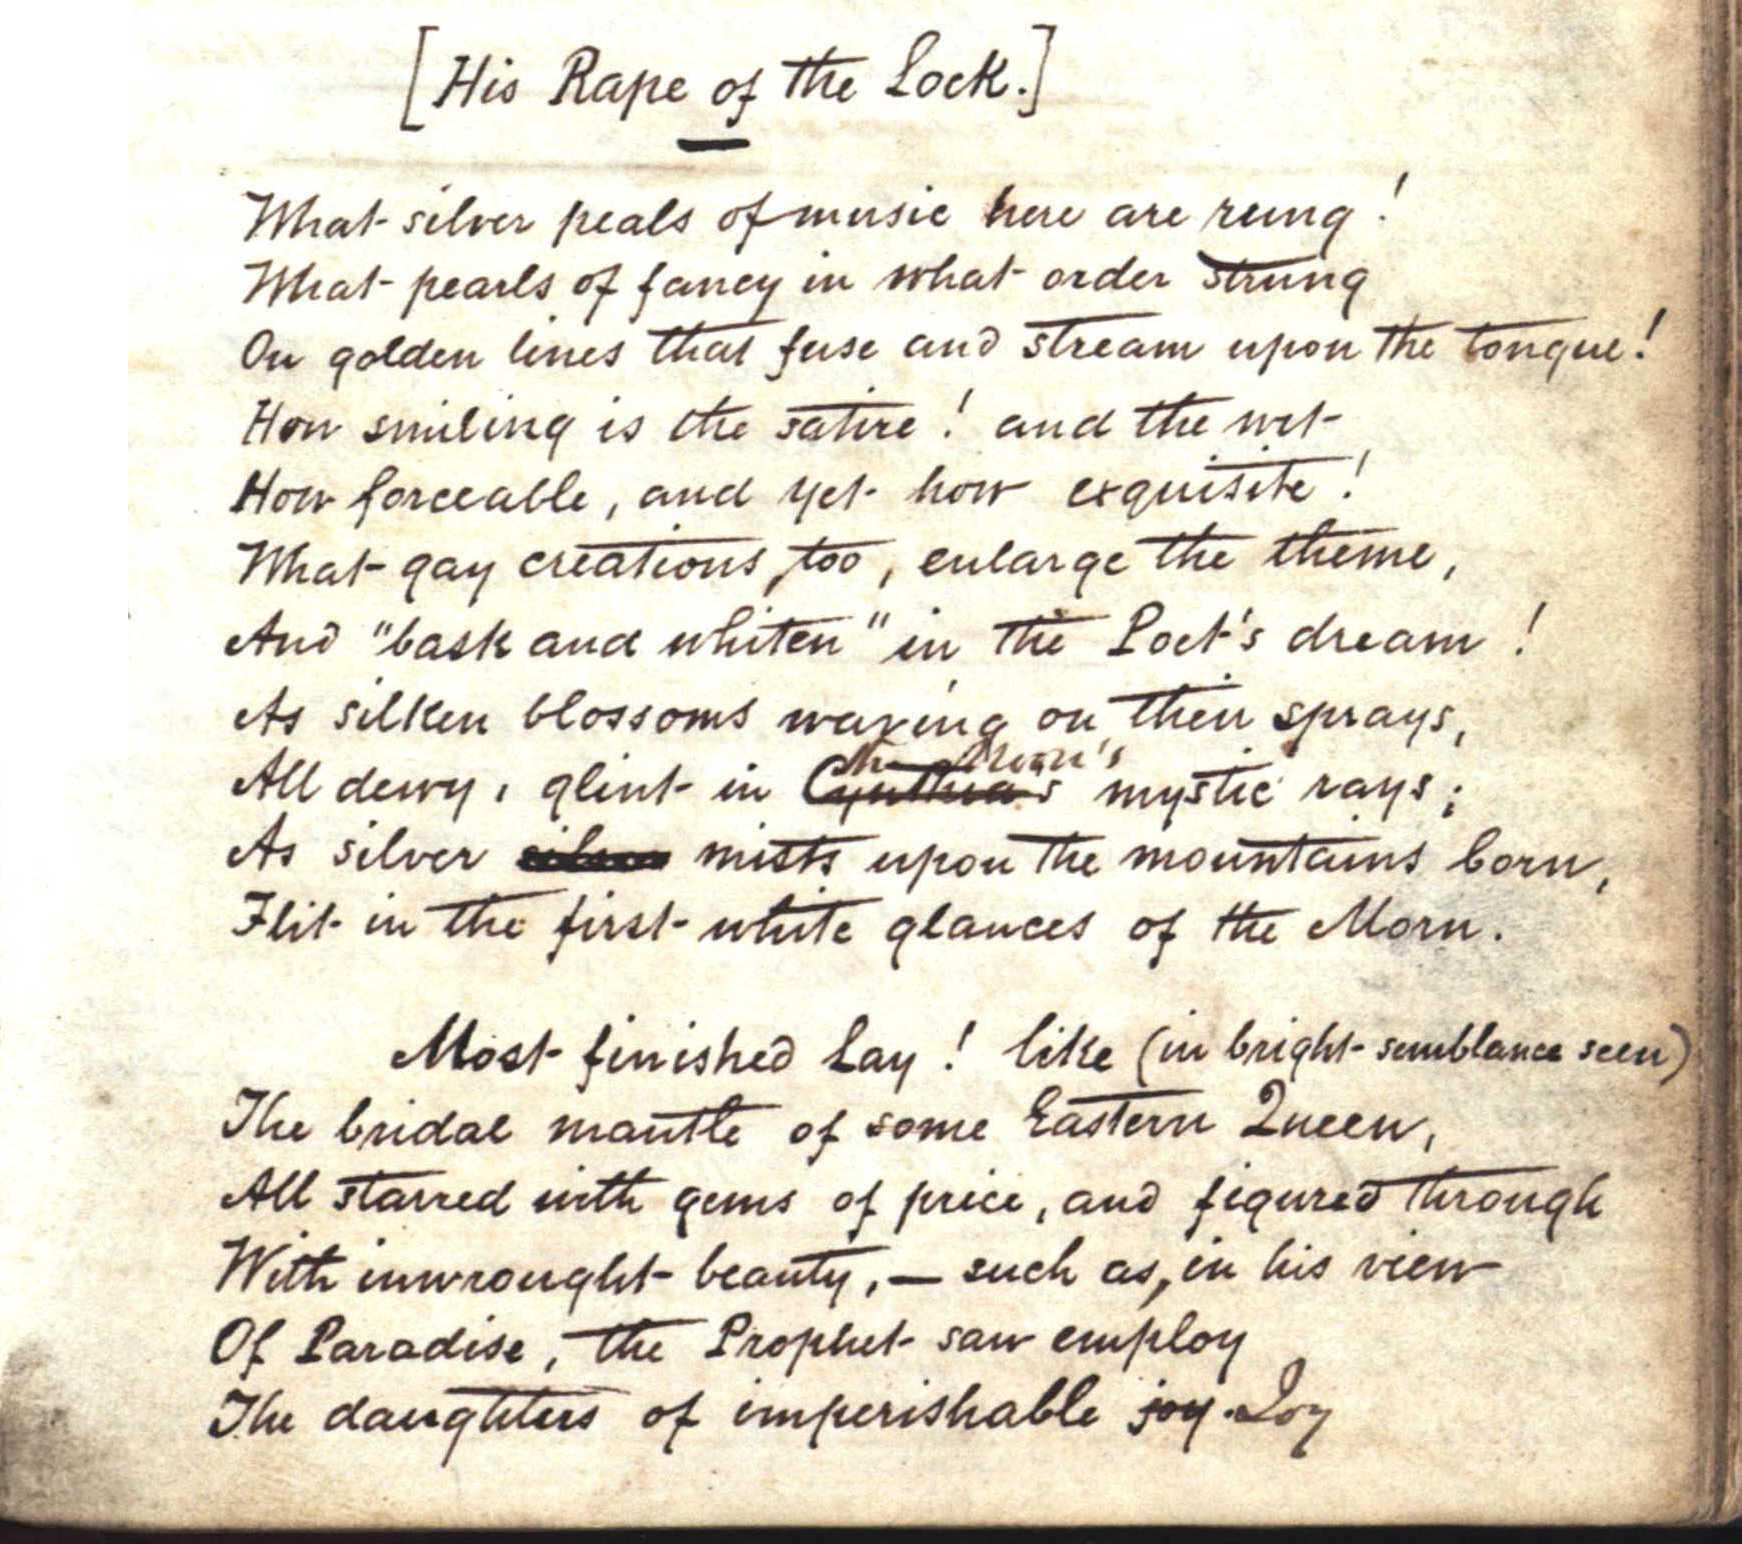 [His Rape of the Lock.]
What silver peals of music here are rung!
What pearls of fancy in what order strung
On golden lines that fuse and stream upon the tongue!
How smiling is the satire! and the wit
How forceable, and yet how exquisite!
What gay creations, too, enlarge the theme,
And "bask and whiten" in the Poet's dream!
As silken blossoms waving on their sprays,
the Moon's
All dewy, glint in Cynthia's mystic rays;
As silver mists upon the mountains born,
Flit in the first white glances of the Morn.
Most finished Lay! like (in bright semblance seen)
The bridal mantle of some Eastern Queen,
All starred with gems of price, and figured through
With inwrought beauty, — such as, in his view
Of Paradise, the Prophet saw employ
The daughters of imperishable joy. Joy